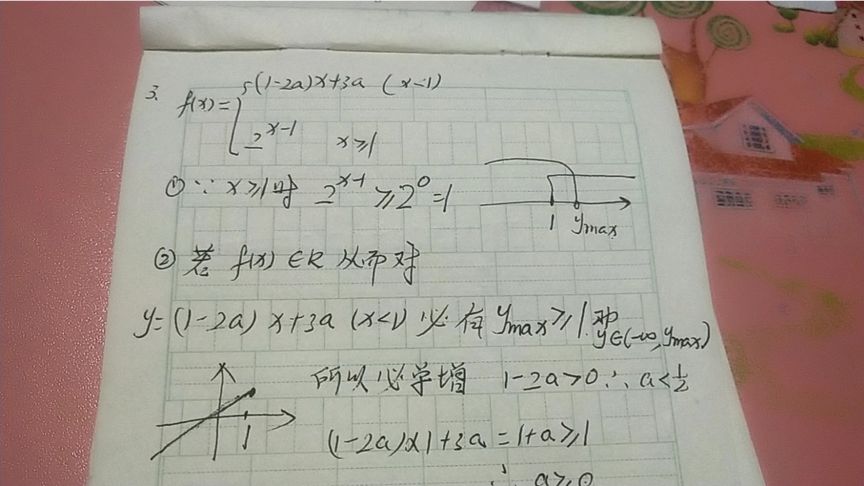 3. f(x)={(1-2a)x+3a (x<1)
2^{x-1} x≥1
① ∵ x≥1时 2^{x-1}≥2^0=1
1 ymax
② 若 f(x)∈R 从而对
y=(1-2a)x+3a (x<1) 必有 ymax≥1 即 y∈(-∞,ymax)
所以必单增 1-2a>0 ∴ a<1/2
1
(1-2a)×1+3a=1+a≥1
∴ a≥0